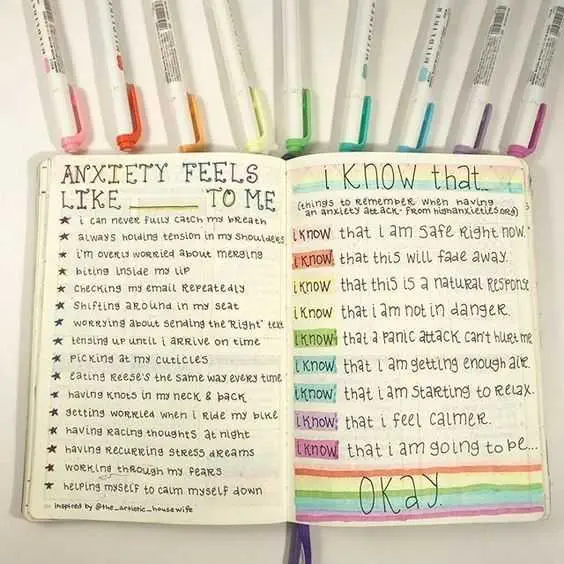 ANXIETY FEELS
LIKE ______ TO ME
★ i can never fully catch my breath
★ always holding tension in my shoulders
★ i'm overly worried about merging
★ biting inside my lip
★ checking my email repeatedly
★ shifting around in my seat
★ worrying about sending the "right" text
★ tensing up until i arrive on time
★ picking at my cuticles
★ eating Reese's the same way every time
★ having knots in my neck & back
★ getting worried when i ride my bike
★ having racing thoughts at night
★ having recurring stress dreams
★ working through my fears
★ helping myself to calm myself down
inspired by @the_artistic_housewife
i KNOW that...
(things to remember when having
an anxiety attack - from highanxieties.org)
i know that i am safe right now.
i know that this will fade away.
i know that this is a natural response
i know that i am not in danger.
i know that a panic attack can't hurt me
i know that i am getting enough air.
i know that i am starting to relax.
i know that i feel calmer.
i know that i am going to be...
OKAY.